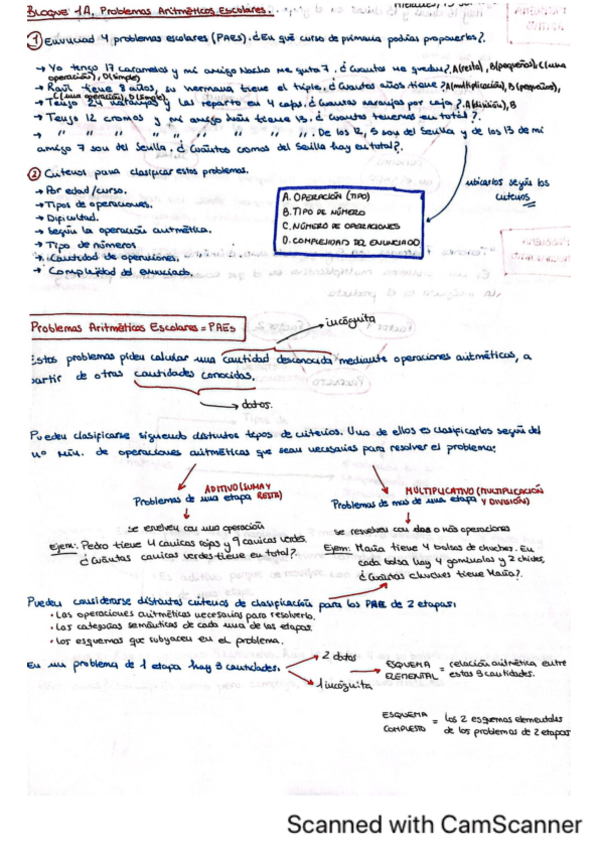 BLOQUE 1A. Problemas Aritméticos Escolares.
① Enunciad 4 problemas escolares (PAEs). ¿En qué curso de primaria podrías proponerlos?.
→ Yo tengo 17 caramelos y mi amigo Nacho me quita 7. ¿Cuántos me quedan?. A(resta), B(pequeños), C(una
operación), D(simple)
→ Raúl tiene 8 años, su hermana tiene el triple. ¿Cuántos años tiene? A(multiplicación), B(pequeños),
C(una operación), D(simple)
→ Tengo 24 naranjas y las reparto en 4 cajas. ¿Cuántas naranjas por caja? A(división), B
→ Tengo 12 cromos y mi amigo tiene 13. ¿Cuántos tenemos en total?.
→ " " " " " " " " " ". De los 12, 5 son del Sevilla y de los 13 de mi
amigo 7 son del Sevilla. ¿Cuántos cromos del Sevilla hay en total?.
② Criterios para clasificar estos problemas.
→ Por edad/curso.
→ Tipos de operaciones.
→ Dificultad.
→ Según la operación aritmética.
→ Tipo de números
→ Cantidad de operaciones.
→ Complejidad del enunciado.
A. OPERACIÓN (TIPO)
B. TIPO DE NÚMERO
C. NÚMERO DE OPERACIONES
D. COMPLEJIDAD DEL ENUNCIADO
ubicarlos según los
criterios
Problemas Aritméticos Escolares = PAEs
incógnita
Estos problemas piden calcular una cantidad desconocida mediante operaciones aritméticas, a
partir de otras cantidades conocidas.
datos.
Pueden clasificarse siguiendo distintos tipos de criterios. Uno de ellos es clasificarlos según del
nº mín. de operaciones aritméticas que sean necesarias para resolver el problema:
ADITIVO (SUMA Y
Problemas de una etapa RESTA)
se envelven con una operación
Ejem: Pedro tiene 4 canicas rojas y 9 canicas verdes.
¿Cuántas canicas verdes tiene en total?.
MULTIPLICATIVO (MULTIPLICACIÓN
Problemas de más de una etapa Y DIVISIÓN)
se resuelven con dos o más operaciones
Ejem: María tiene 4 bolsas de chuches. En
cada bolsa hay 4 gominolas y 2 chicles.
¿Cuántas chuches tiene María?.
Pueden considerarse distintos criterios de clasificación para los PAE de 2 etapas:
• Las operaciones aritméticas necesarias para resolverlo.
• Las categorías semánticas de cada una de las etapas.
• Los esquemas que subyacen en el problema.
En un problema de 1 etapa hay 3 cantidades.
2 datos
1 incógnita
ESQUEMA ELEMENTAL = relación aritmética entre
estas 3 cantidades.
ESQUEMA COMPUESTO = los 2 esquemas elementales
de los problemas de 2 etapas
Scanned with CamScanner